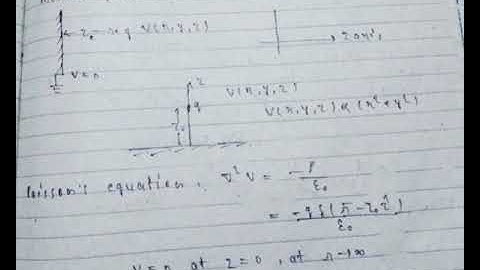 V(x,y,z)
z axis
V=0
z
q
V(x,y,z)
V(x,y,z) α (x²+y²)
z₀
Poisson's equation, ∇²V = -ρ/ε₀
= -qδ(r̄-z₀ẑ)/ε₀
V=0 at z=0, at r→∞